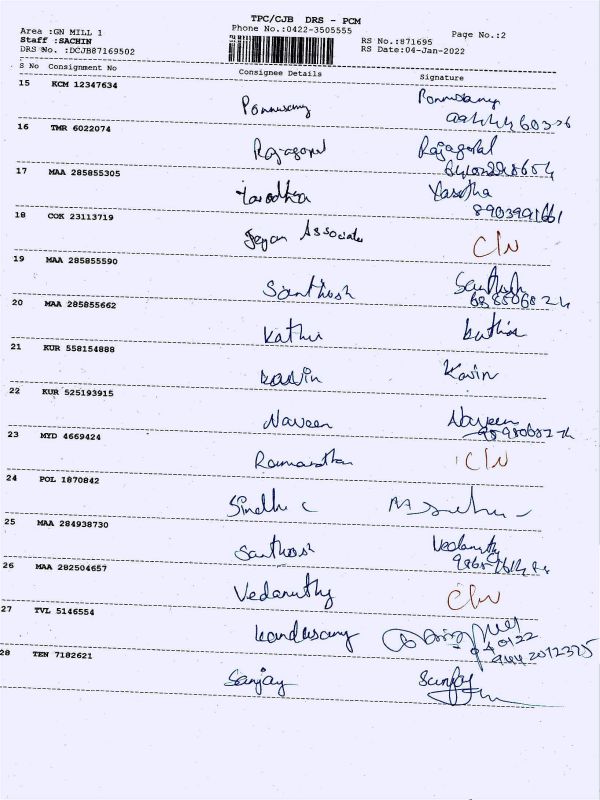 TPC/CJB DRS - PCM
Area :GN MILL 1 Phone No.:0422-3505555 Page No.:2
Staff :SACHIN RS No.:871695
DRS No. :DCJB87169502 RS Date:04-Jan-2022
S No Consignment No Consignee Details Signature
15 KCM 12347634
Ponnusamy Ponnusamy
16 TMR 6022074
Rajagopal Rajagopal
17 MAA 285855305
Yasodha Yasotha
8903991661
18 COK 23113719
Jeyam Associates
19 MAA 285855590
Santhosh Santhosh
20 MAA 285855662
Kathir Kathir
21 KUR 558154888
Kavin Kavin
22 KUR 525193915
Naveen Naveen
23 MYD 4669424
24 POL 1870842
Sindhu C
25 MAA 284938730
Santhosh
26 MAA 282504657
Vedamuthy
27 TVL 5146554
Kandasamy
28 TEN 7182621
Sanjay Sanjay